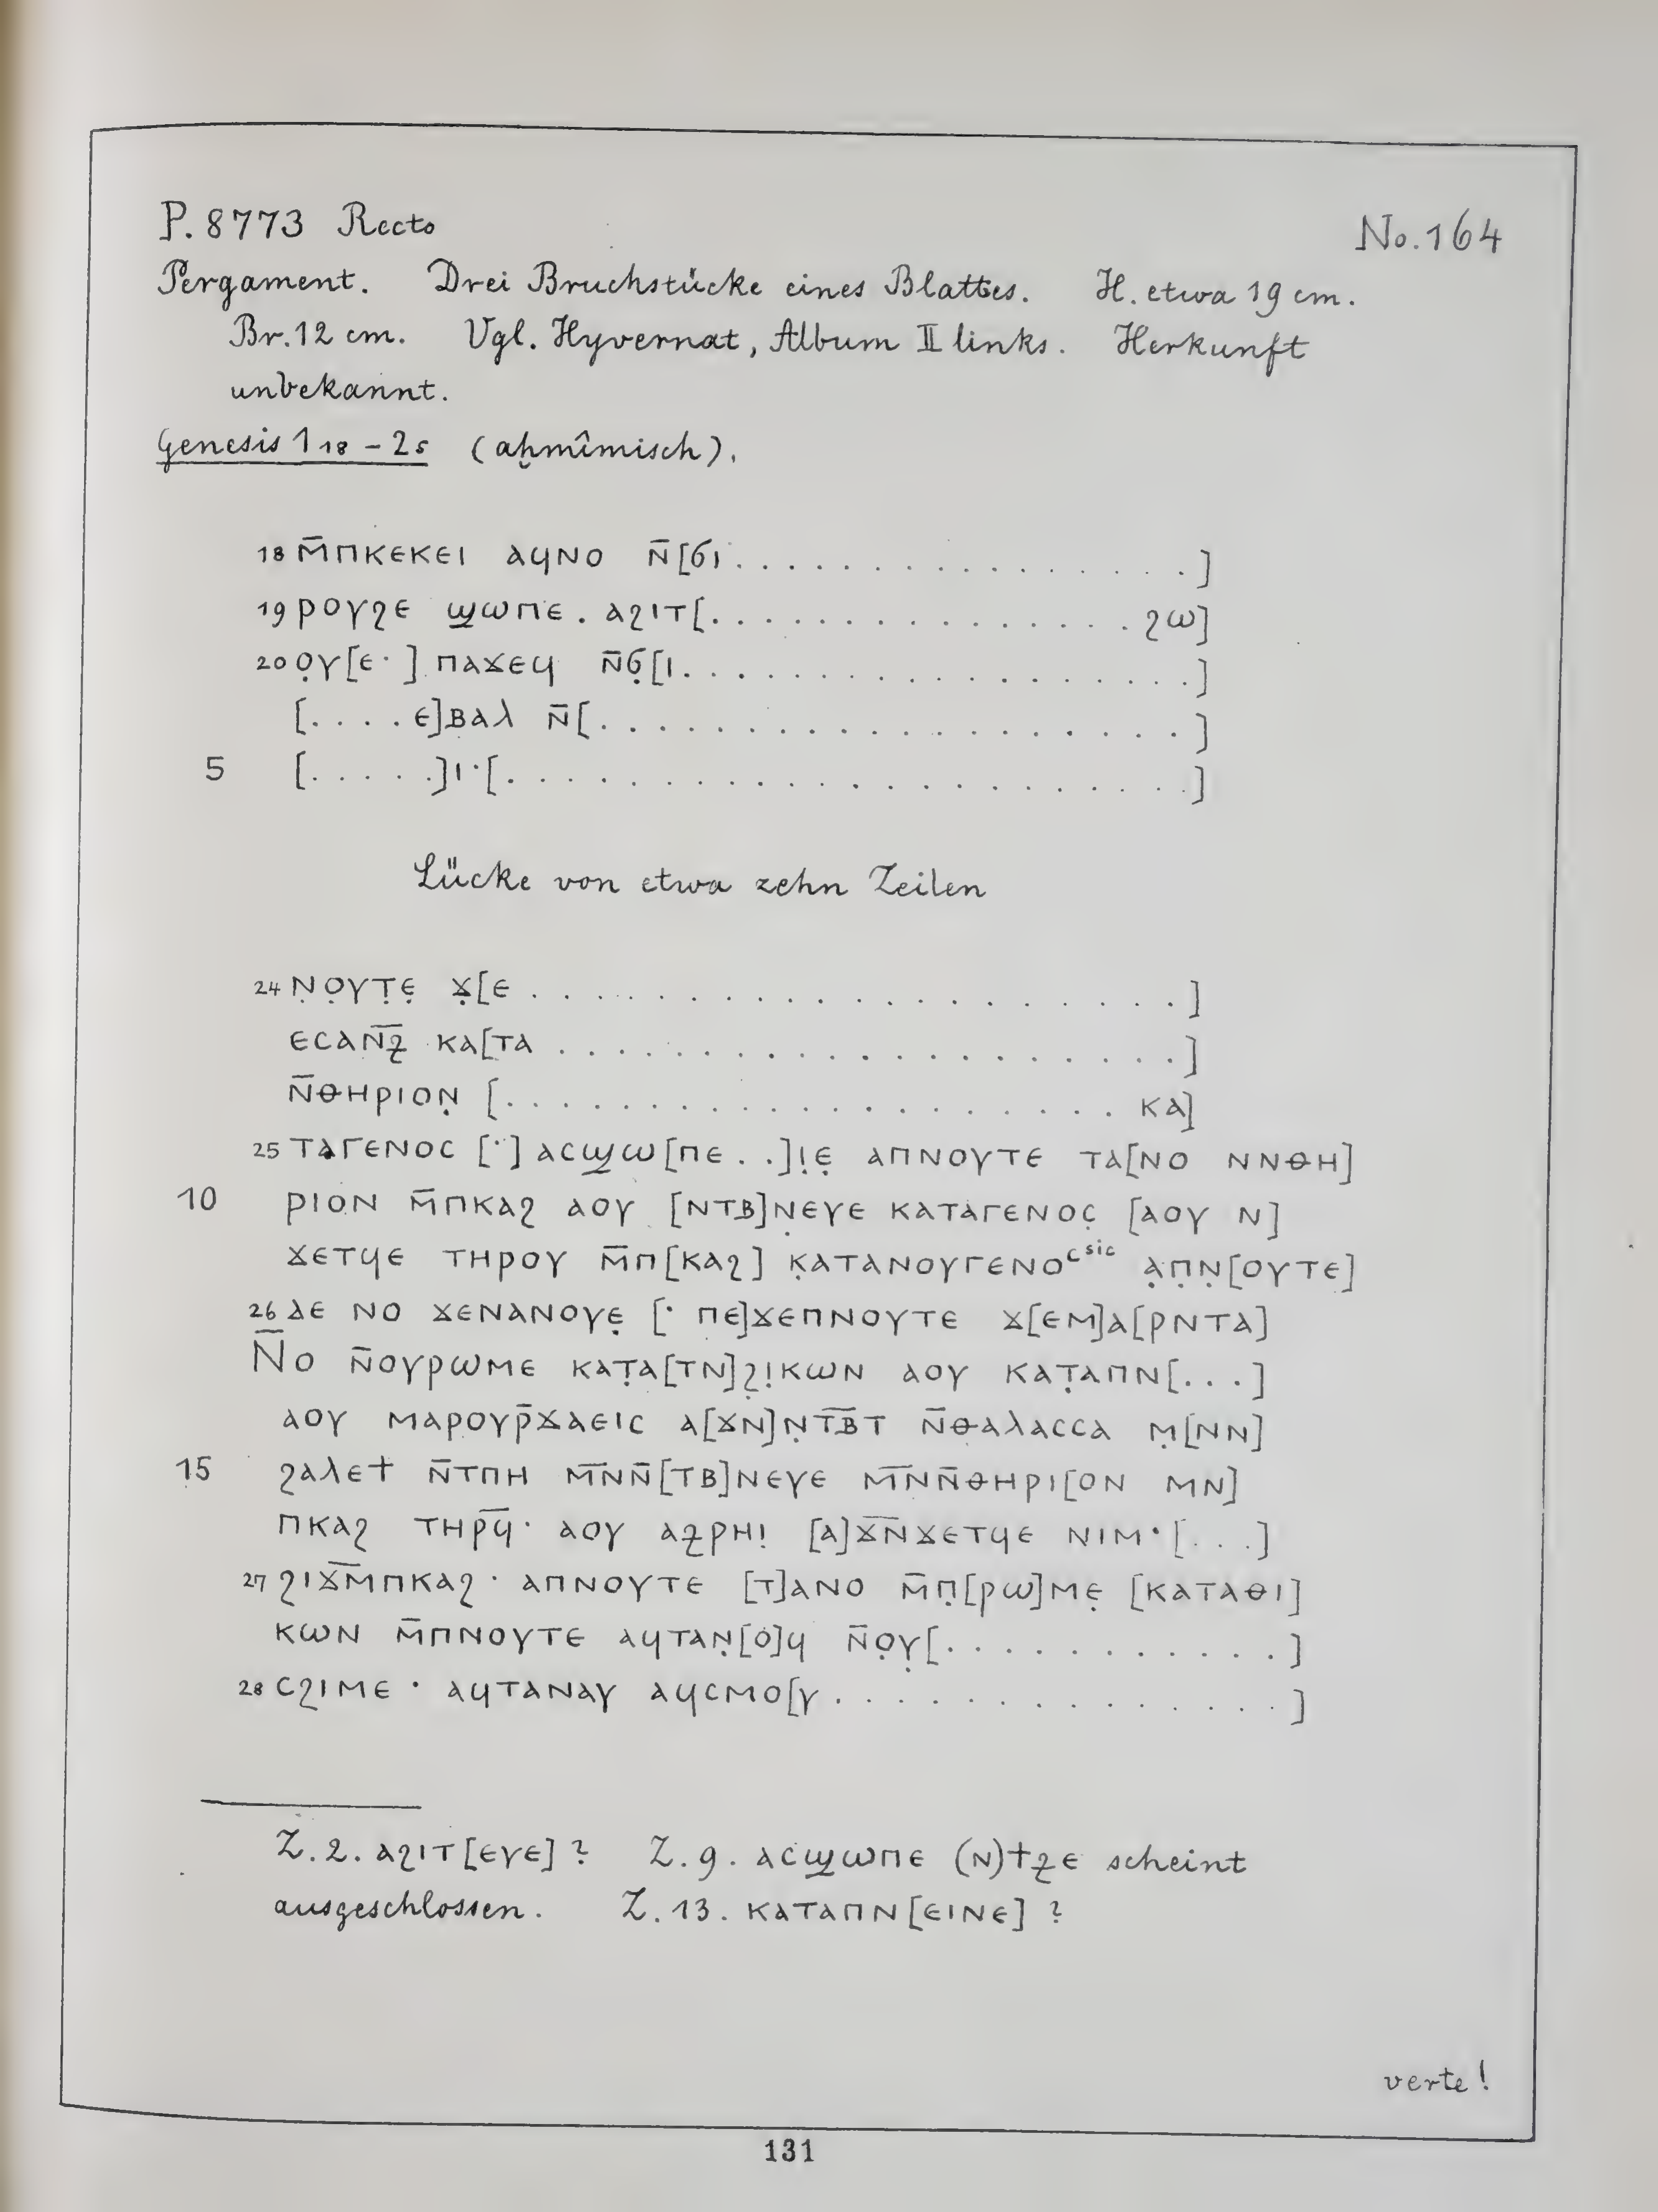 P. 8773 Recto No. 164
Pergament. Drei Bruchstücke eines Blattes. H. etwa 19 cm.
Br. 12 cm. Vgl. Hyvernat, Album II links. Herkunft
unbekannt.
Genesis 1 18 – 2 5 (aḫmîmisch).
18 ⲙ̄ⲡⲕⲉⲕⲉⲓ ⲁϥⲛⲟ ⲛ̄[ϭⲓ . . . . . . . . . . . . . . . .]
19 ⲣⲟⲩϩⲉ ϣ̱ⲱⲡⲉ . ⲁϩⲓⲧ[. . . . . . . . . . . . . . . ϩⲱ]
20 ⲟ̣ⲩ[ⲉ · ] ⲡⲁϫⲉϥ ⲛ̄ϭ̣[ⲓ. . . . . . . . . . . . . . . . . .]
[. . . . ⲉ]ⲃⲁⲗ ⲛ̄[. . . . . . . . . . . . . . . . . . . .]
5 [. . . . .]ⲓ·[. . . . . . . . . . . . . . . . . . . . . . .]
Lücke von etwa zehn Zeilen
24 ⲛ̣ⲟ̣ⲩⲧ̣ⲉ̣ ϫ̣[ⲉ . . . . . . . . . . . . . . . . . . . . . .]
ⲉⲥⲁⲛ̄ⳉ ⲕⲁ[ⲧⲁ . . . . . . . . . . . . . . . . . . . . .]
ⲛ̄ⲑⲏⲣⲓⲟⲛ̣ [. . . . . . . . . . . . . . . . . . . . . ⲕⲁ]
25 ⲧⲁⲅⲉⲛⲟⲥ [·] ⲁⲥϣ̱ⲱ[ⲡⲉ . .]ⲓ̣ⲉ̣ ⲁⲡⲛⲟⲩⲧⲉ ⲧⲁ[ⲛⲟ ⲛⲛⲑⲏ]
10 ⲣⲓⲟⲛ ⲙ̄ⲡⲕⲁϩ ⲁⲟⲩ [ⲛⲧⲃ]ⲛ̣ⲉⲩⲉ ⲕⲁⲧⲁⲅⲉⲛⲟⲥ̣ [ⲁⲟⲩ ⲛ]
ϫⲉⲧϥⲉ ⲧⲏⲣⲟⲩ ⲙ̄ⲡ[ⲕⲁϩ] ⲕ̣ⲁⲧⲁⲛⲟⲩⲅⲉⲛⲟⲥ sic ⲁ̣ⲡ̣ⲛ̣[ⲟⲩⲧⲉ]
26 ⲇⲉ ⲛⲟ ϫⲉⲛⲁⲛⲟⲩⲉ̣ [· ⲡⲉ]ϫⲉⲡⲛⲟⲩⲧⲉ ϫ[ⲉⲙ]ⲁ[ⲣⲛⲧⲁ]
ⲛ̄ⲟ ⲛ̄ⲟⲩⲣⲱⲙⲉ ⲕⲁⲧ̣ⲁ[ⲧⲛ]ϩ̣ⲓ̣ⲕⲱⲛ ⲁⲟⲩ ⲕⲁⲧ̣ⲁⲡⲛ[. . .]
ⲁⲟⲩ ⲙⲁⲣⲟⲩⲣ̄ϫⲁⲉⲓⲥ ⲁ[ϫⲛ]ⲛ̣ⲧ̄ⲃ̄ⲧ ⲛ̄ⲑⲁⲗⲁⲥⲥⲁ ⲙ̣[ⲛⲛ]
15 ϩⲁⲗⲉϯ ⲛ̄ⲧⲡⲏ ⲙ̄ⲛⲛ̄[ⲧⲃ]ⲛⲉⲩⲉ ⲙ̄ⲛⲛ̄ⲑⲏⲣⲓ[ⲟⲛ ⲙⲛ]
ⲡⲕⲁϩ ⲧⲏⲣ̄ϥ· ⲁⲟⲩ ⲁⳉⲣⲏⲓ̣ [ⲁ]ϫ̄ⲛ̄ϫⲉⲧϥⲉ ⲛⲓⲙ·[. . .]
27 ϩⲓϫ̄ⲙ̄ⲡⲕⲁϩ · ⲁⲡⲛⲟⲩⲧⲉ [ⲧ]ⲁⲛⲟ ⲙ̄ⲡ̣[ⲣⲱ]ⲙⲉ̣ [ⲕⲁⲧⲁⲑⲓ]
ⲕⲱⲛ ⲙ̄ⲡⲛⲟⲩⲧⲉ ⲁϥⲧⲁⲛ̣[ⲟ]ϥ ⲛ̄ⲟ̣ⲩ̣[. . . . . . . . . . .]
28 ⲥϩⲓⲙⲉ · ⲁϥⲧⲁⲛⲁⲩ ⲁϥⲥⲙⲟ[ⲩ . . . . . . . . . . . . . .]
Z. 2. ⲁϩⲓⲧ[ⲉⲩⲉ] ? Z. 9. ⲁⲥϣ̱ⲱⲡⲉ (ⲛ)ϯⳉⲉ scheint
ausgeschlossen. Z. 13. ⲕⲁⲧⲁⲡⲛ[ⲉⲓⲛⲉ] ?
verte!
131